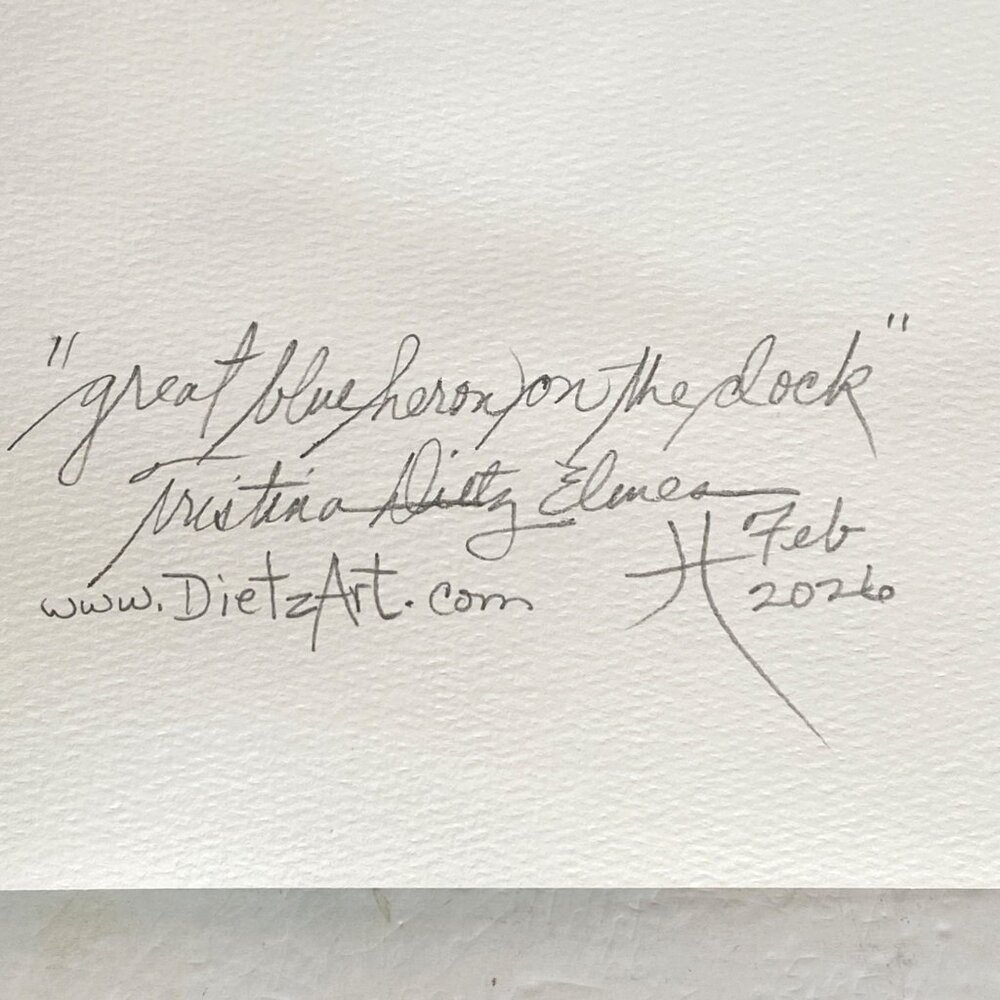 "great blue heron on the dock"
Tristina Dietz Elmes
www.DietzArt.com
Feb
2026